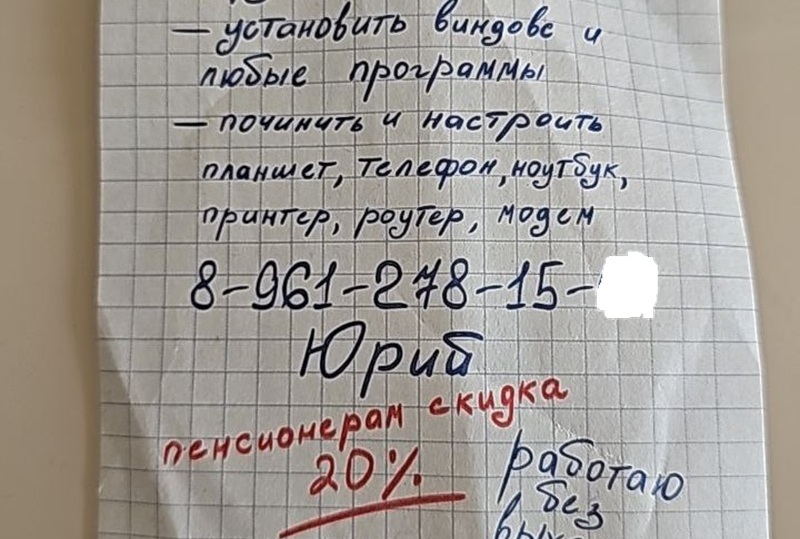 — установить виндовс и
любые программы
— починить и настроить
планшет, телефон, ноутбук,
принтер, роутер, модем
8-961-278-15-
Юрий
пенсионерам скидка
20%
работаю
без